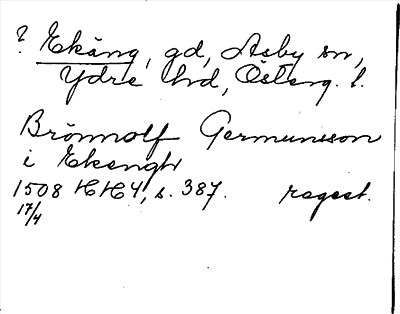 ? Ekäng, gd, Asby sn,
Ydre hd, Österg. l.
Brönnolf Germunsson
i Ekengh
1508 HH 4, s. 387. regest.
17/4